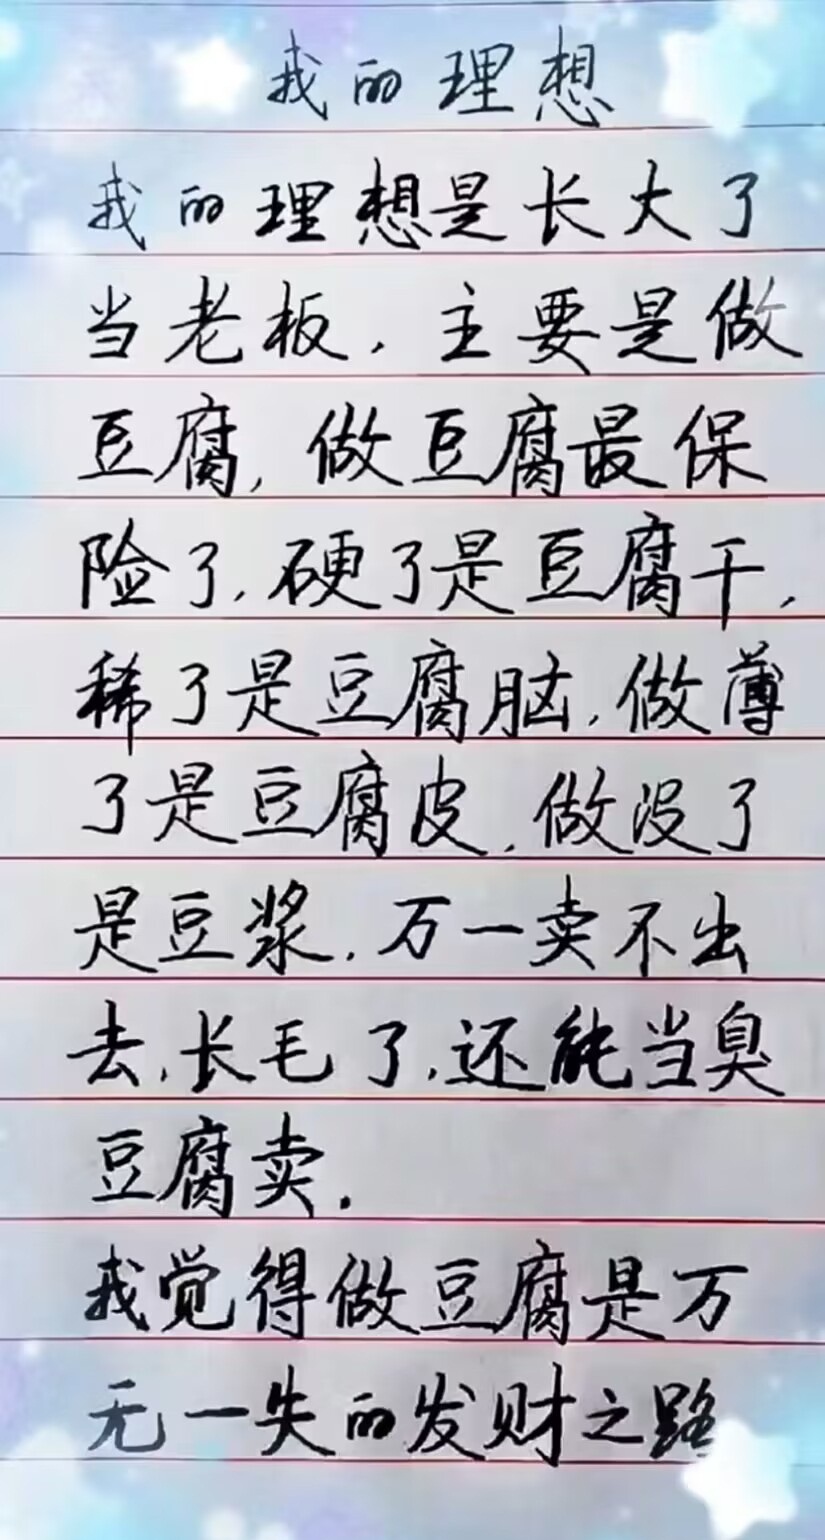 我的理想
我的理想是长大了
当老板，主要是做
豆腐，做豆腐最保
险了，硬了是豆腐干，
稀了是豆腐脑，做薄
了是豆腐皮，做没了
是豆浆，万一卖不出
去，长毛了，还能当臭
豆腐卖.
我觉得做豆腐是万
无一失的发财之路